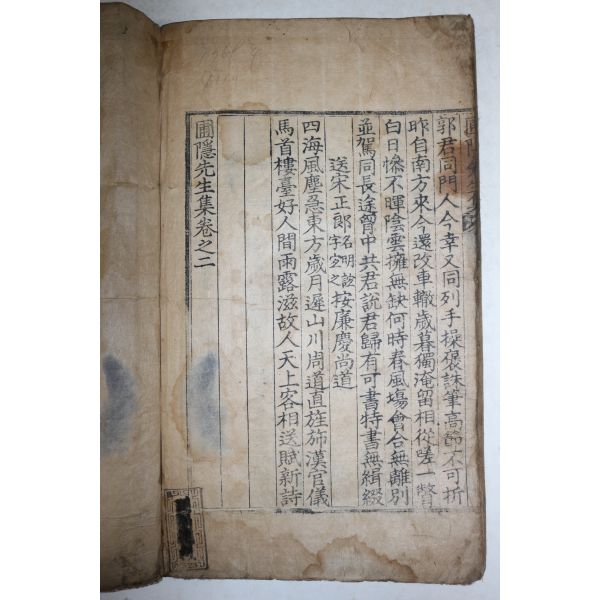 郭君同門人今幸又同列手操褒誅筆高節不可折
昨自南方來今還改車轍歲暮獨淹留相從嗟一瞥
白日慘不暉陰雲擁無缺何時春風場會合無離別
並駕同長途胷中共君說君歸有可書特書無緝綴
送宋正郎名明誼字空之按廉慶尚道
四海風塵急東方歲月遲山川周道直旌斾漢官儀
馬首樓臺好人間雨露滋故人天上客相送賦新詩
圃隱先生集卷之二